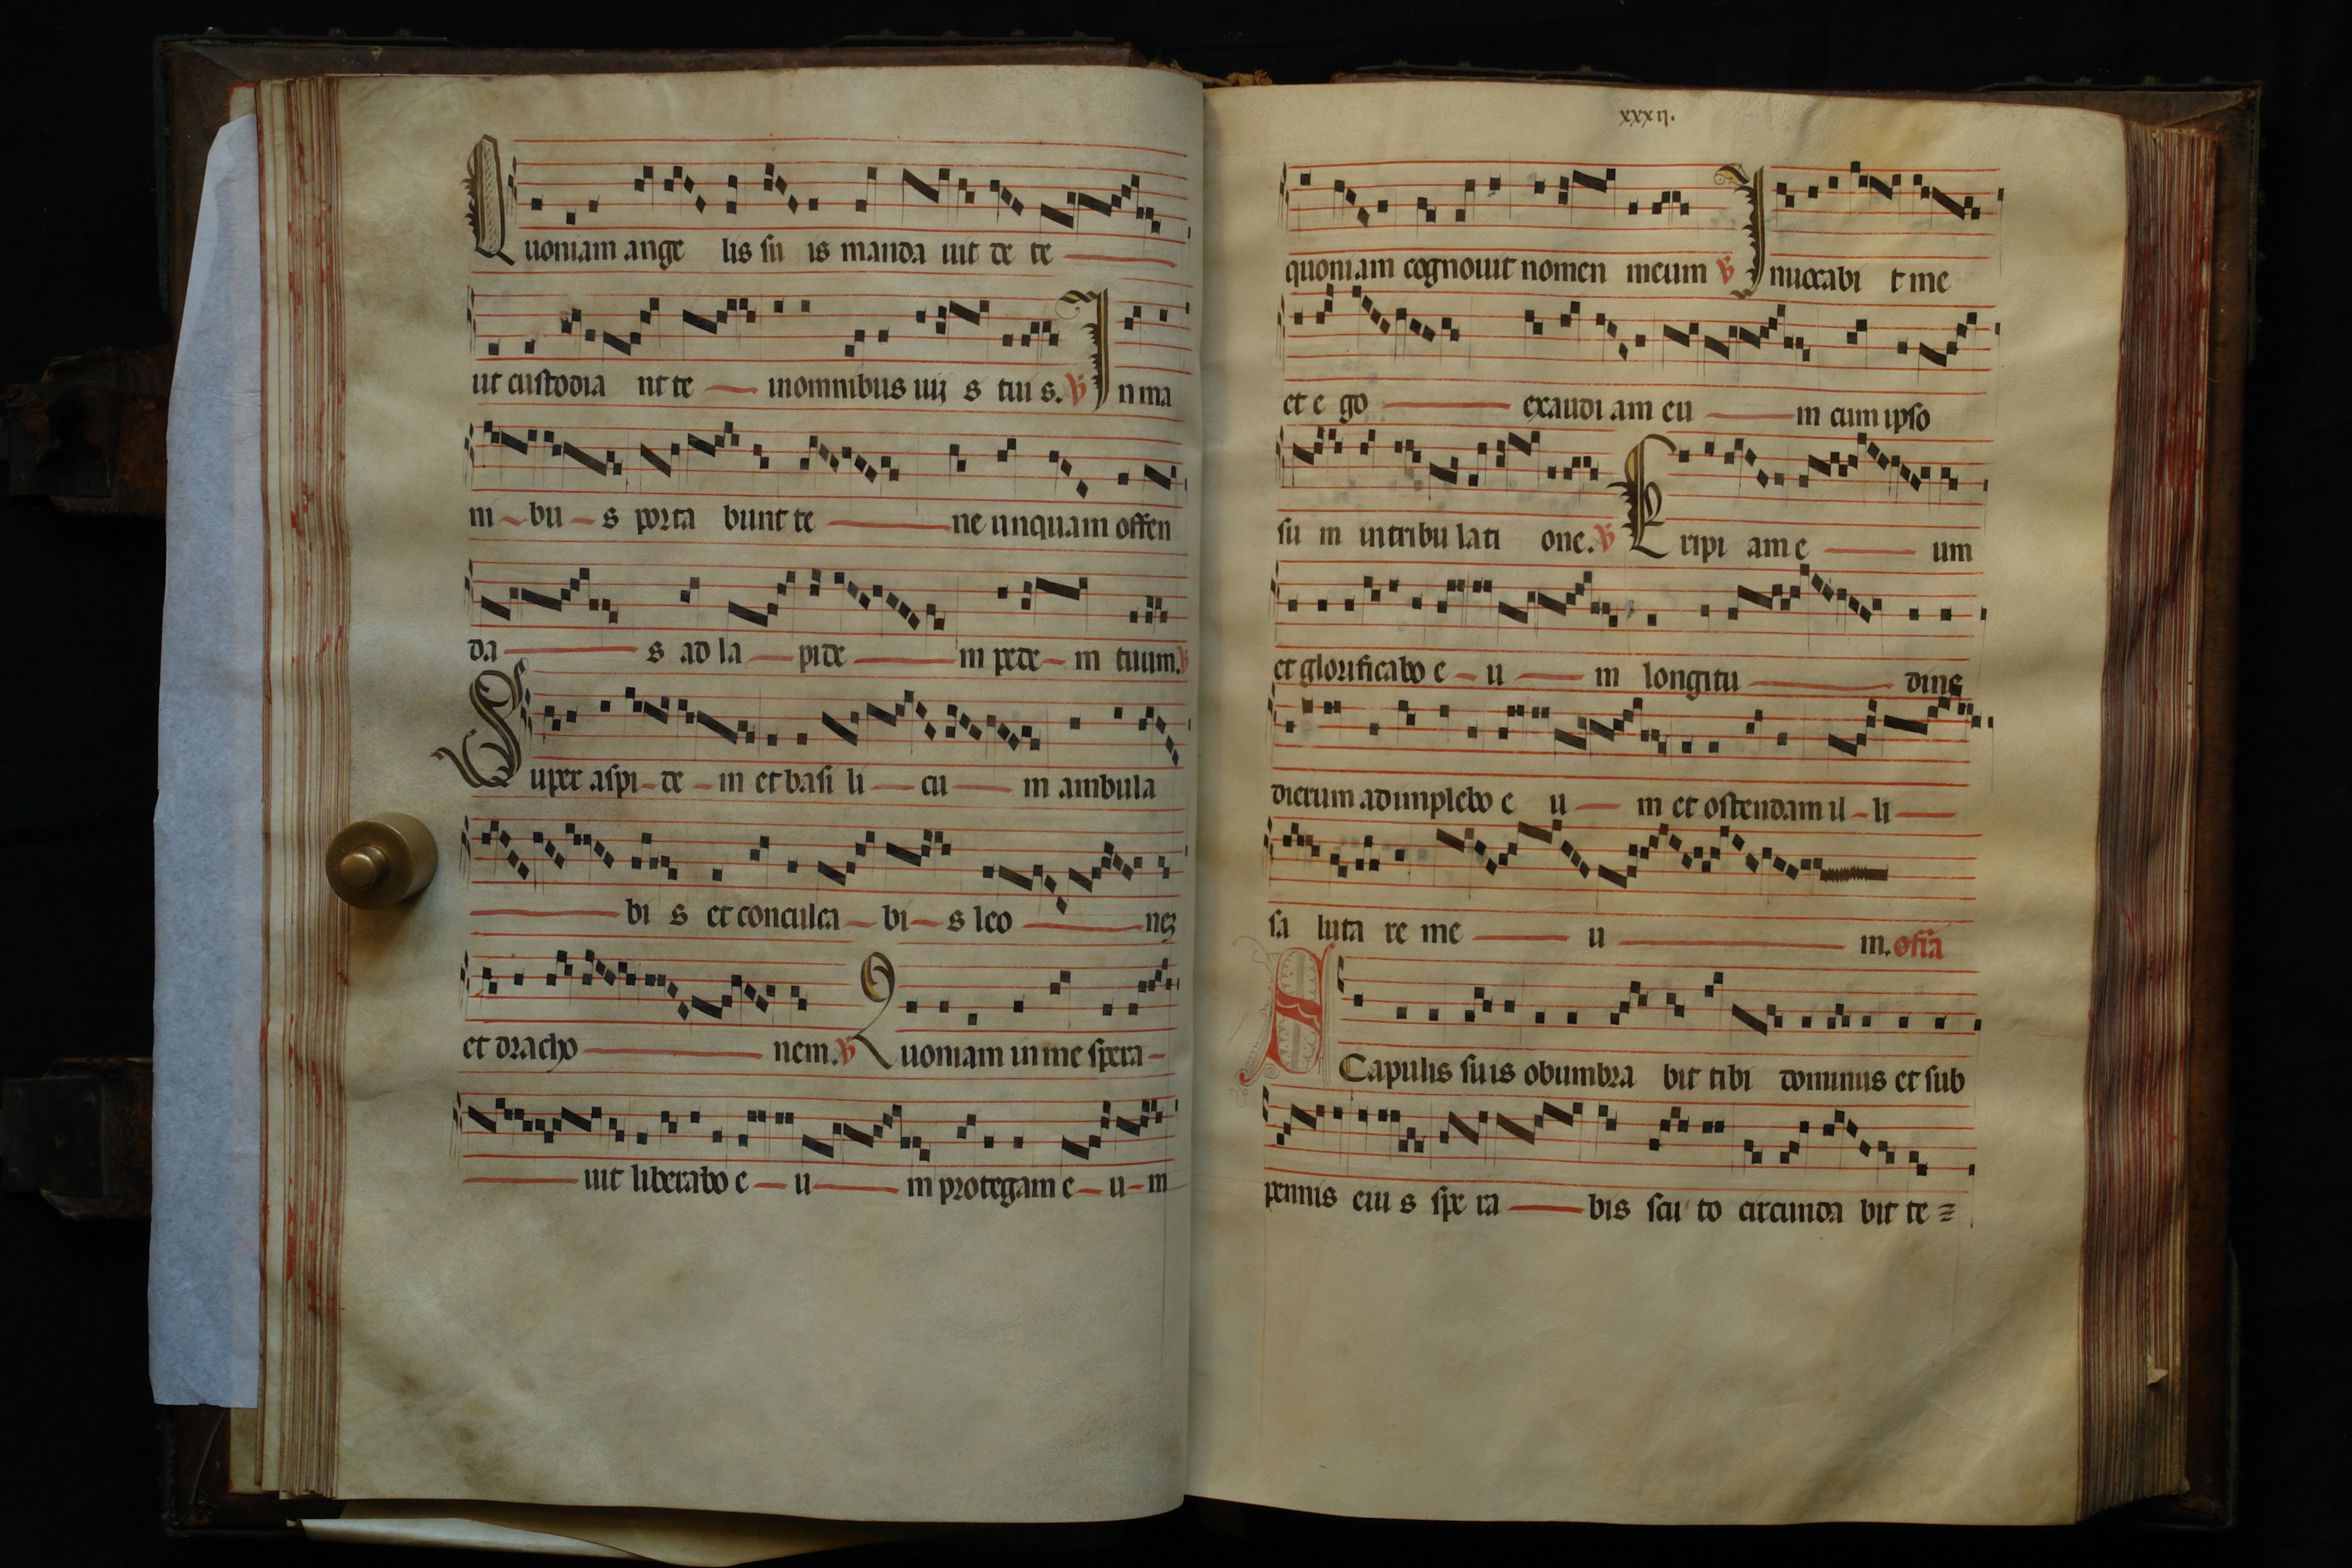 Quoniam ange lis su is manda uit de te
ut custodia nt te in omnibus uij s tuis. ℣ In ma
ni bu s porta bunt te ne unquam offen
da s ad la pide m pede m tuum. ℣
Super aspi de m et basi li cu m ambula
bi s et conculca bi s leo nem
et dracho nem. ℣ Quoniam in me spera
uit liberabo e u m protegam e u m
xxxij.
quoniam cognouit nomen meum ℣ Inuocabi t me
et e go exaudi am eu m cum ipso
su m in tribu lati one. ℣ Eripi am e um
et glorificabo e u m longitu dine
dierum adimplebo e u m et ostendam il li
sa luta re me u m. offa
SCapulis suis obumbra bit tibi dominus et sub
pennis eiu s spe ra bis scu to circunda bit te